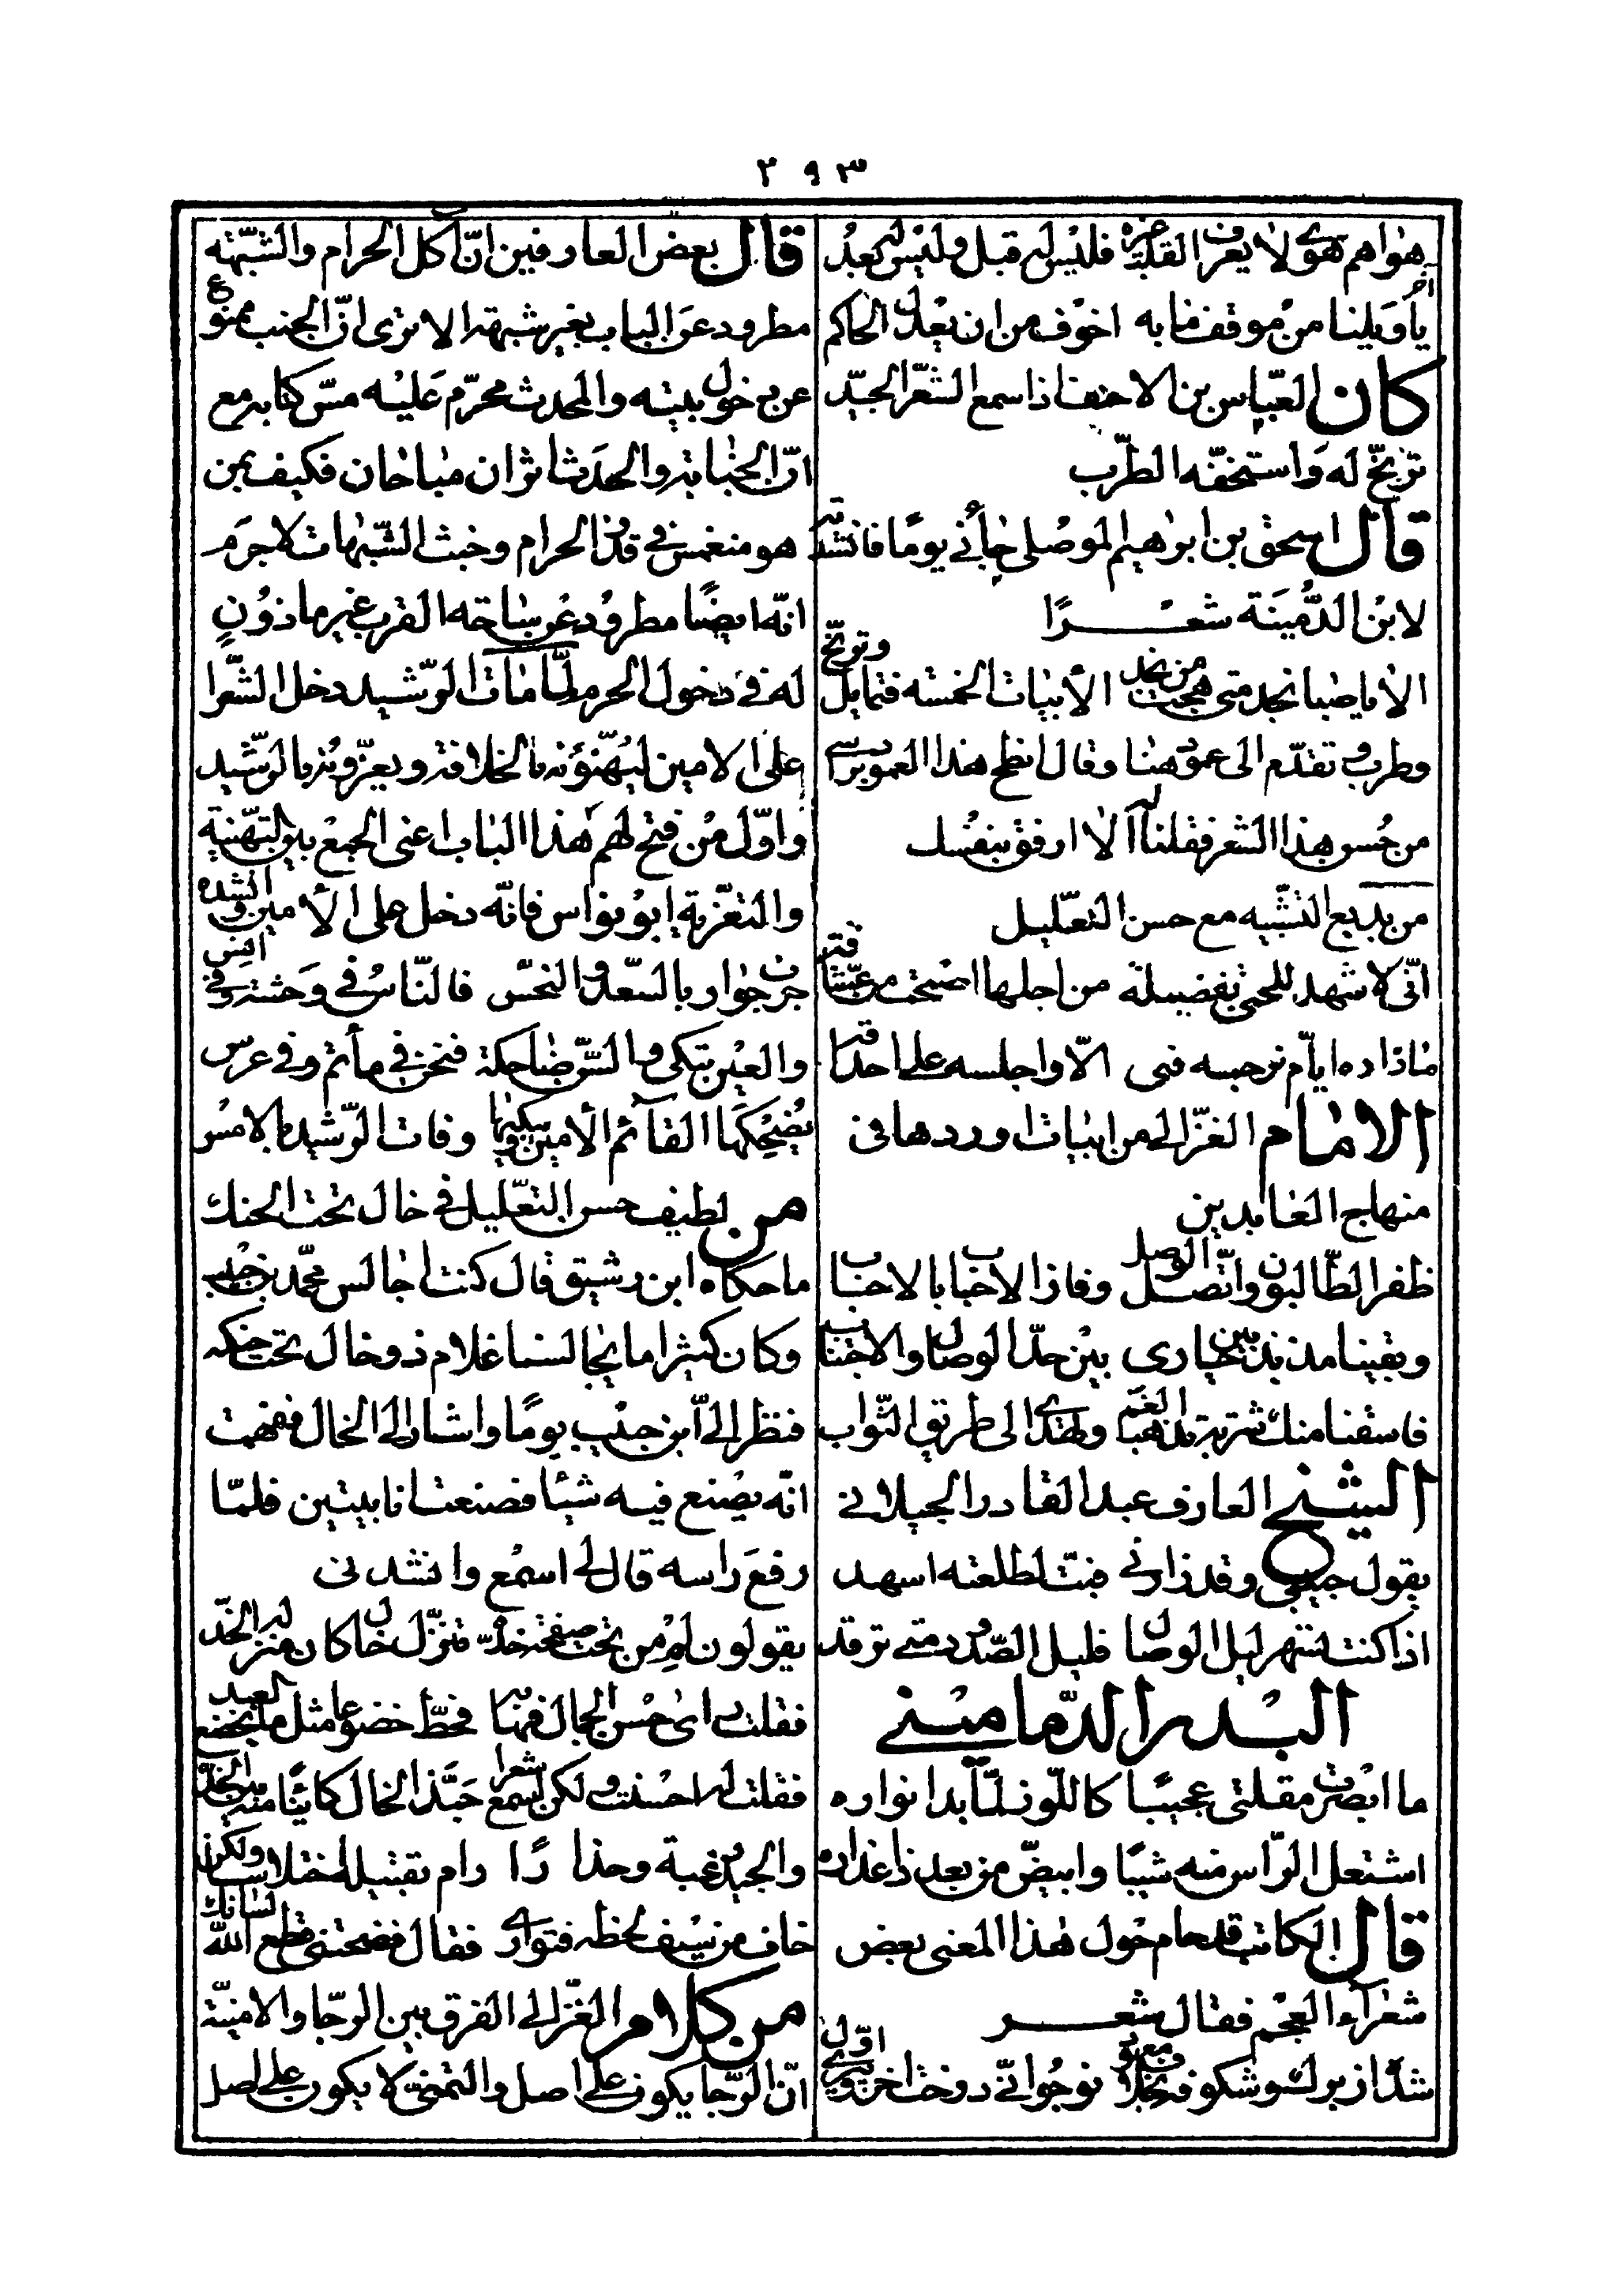 ٢٩٣
هواهم هوى لا يعرف القلب غيره فليس له قبل وليس له بعد
آخر
يا ويلينا من موقف ما به اخوف من ان يعدل الحاكم
كان العبّاس بن الاحنف اذا سمع الشعر الجيّد
ترنّح له واستخفّه الطّرب
قال اسحق بن ابرهيم الموصلى جاءنى يومًا فانشدته
لابن الدّمينة شعرًا
الا يا صبا نجد متى هجت من نجد الأبيات الخمسة فتمايل وترنّح
وطرب وتقدّم الى عمود هنا وقال انطح هذا العمود براسى
من حسن هذا الشعر فقلنا له ألا ارفق بنفسك
من بديع التشبيه مع حسن التعليل
انّى لاشهد للحمى بفضيلة من اجلها اصبحت من عشّاقه
ما زاده ايّام نرجسه فتى الّا واجلسه على احداقه
الامام الغزّالى من ابيات اوردها فى
منهاج العابدين
ظفر الطّالبون واتّصل الوصل وفاز الاحباب بالاحباب
وبقينا مذبذبين حيارى بين حدّ الوصال والاجتناب
فاسقنا منك شربة تذهب الغم وتهدى الى طريق الثّواب
الشيخ العارف عبد القادر الجيلانى
يقول حبيبى وقد زارنى فبتّ لطلعته اسهد
اذا كنت تسهر ليل الوصال فليل الصّدود متى ترقد
البدر الدّمامينى
ما ابصرت مقلتى عجيبًا كاللّوز لمّا بدا نواره
اشتعل الرّاس منه شيبًا وابيضّ من بعد ذا عذاره
قال الكاتب قد حام حول هذا المعنى بعض
شعرآء العجم فقال شعر
شد از برك وشكوفه نوجوانى دوخت اخر
قال بعض العارفين انّ آكل الحرام والشبهة
مطرود عن الباب بغير شبهة الا ترى انّ الجنب ممنوع
عن دخول بيته والمحدث محرّم عليه مسّ كتابه مع
انّ الجنابة والحدث اثران مباحان فكيف بمن
هو منغمس فى قذر الحرام وخبث الشّبهات لا جرم
انّه ايضًا مطرود عن ساحة القرب غير مأذون
له فى دخول الحرم لمّا مات الرّشيد دخل الشّعرا
على الامين ليهنّؤنه بالخلافة ويعزّونه بالرّشيد
واوّل من فتح لهم هذا الباب اعنى الجمع بين التهنية
والتعزية ابو نواس فانّه دخل على الأمين وانشده
جرت جوار بالسّعد والنّحس فالنّاس فى وحشة وفى انس
والعين تبكى والسّن ضاحكة فنحن فى مأتم وفى عرس
يضحكها القآئم الأمين ويبكيها وفات الرّشيد بالامس
من لطيف حسن التعليل فى خال تحت الحنك
ما حكاه ابن رشيق قال كنت اجالس محمّد بن حبيب
وكان كثيرا ما يجالسنا غلام ذو خال تحت حنكه
فنظر الىّ ابن حبيب يومًا واشار الى الخال ففهمت
انّه يصنع فيه شيئا فصنعت انا بيتين فلمّا
رفع راسه قال لى اسمع وانشدنى
يقولون لم من تحت صفحة خدّه تنزّل خال كان منزله الخدّ
فقلت راى حسن الجمال فهابه فحطّ خضوعا مثل ما يخضع العبد
فقلت له احسنت ولكن اسمع شعرا حبّذا الخال كائنًا منه بين الخدّ
والجيد رغبة وحذارًا رام تقبيله اختلاسا ولكن
خاف من سيف لحظه فتوارى فقال فضحتنى قطع الله لسانك
من كلام الغزّالى الفرق بين الرّجا والامنيّة
انّ الرّجا يكون على اصل والتمنّى لا يكون على اصل